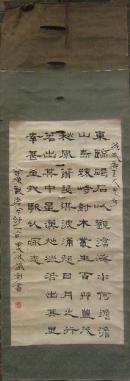 東臨碣石以觀滄海水何澹澹
山島竦峙樹木叢生百草豐茂
秋風蕭瑟洪波涌起日月之行
若出其中星漢燦爛若出其里
幸甚至哉歌以詠志